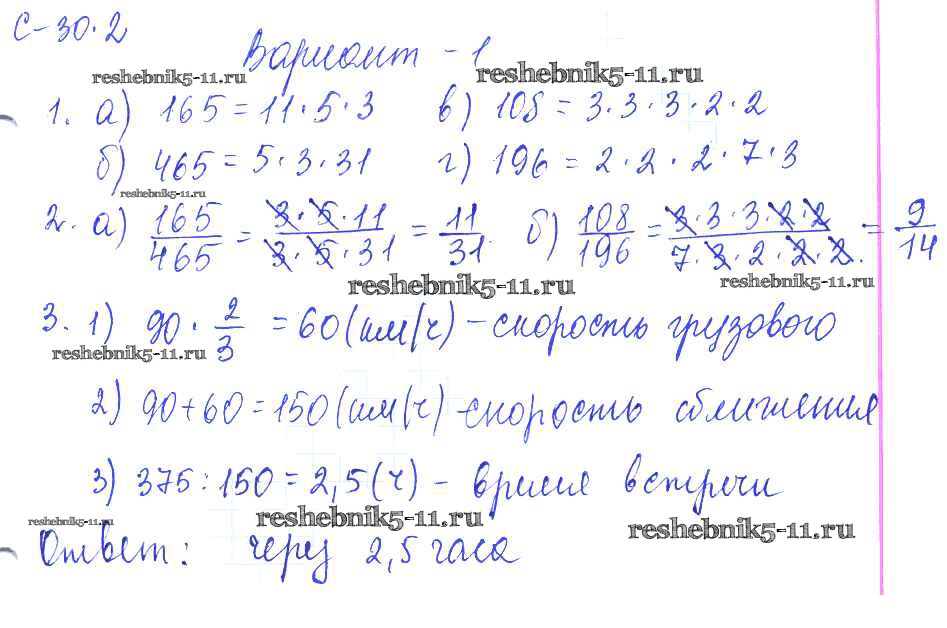 С-30.2
Вариант - 1
reshebnik5-11.ru reshebnik5-11.ru
1. а) 165 = 11·5·3 в) 108 = 3·3·3·2·2
б) 465 = 5·3·31 г) 196 = 2·2·2·7·3
reshebnik5-11.ru
2. а) 165/465 = 3·5·11/3·5·31 = 11/31. б) 108/196 = 3·3·3·2·2/7·3·2·2·2. = 9/14
reshebnik5-11.ru reshebnik5-11.ru
3. 1) 90 · 2/3 = 60 (км/ч) - скорость грузового
reshebnik5-11.ru
2) 90+60=150 (км/ч) - скорость сближения
3) 375:150=2,5 (ч) - время встречи
reshebnik5-11.ru reshebnik5-11.ru reshebnik5-11.ru
Ответ: через 2,5 часа